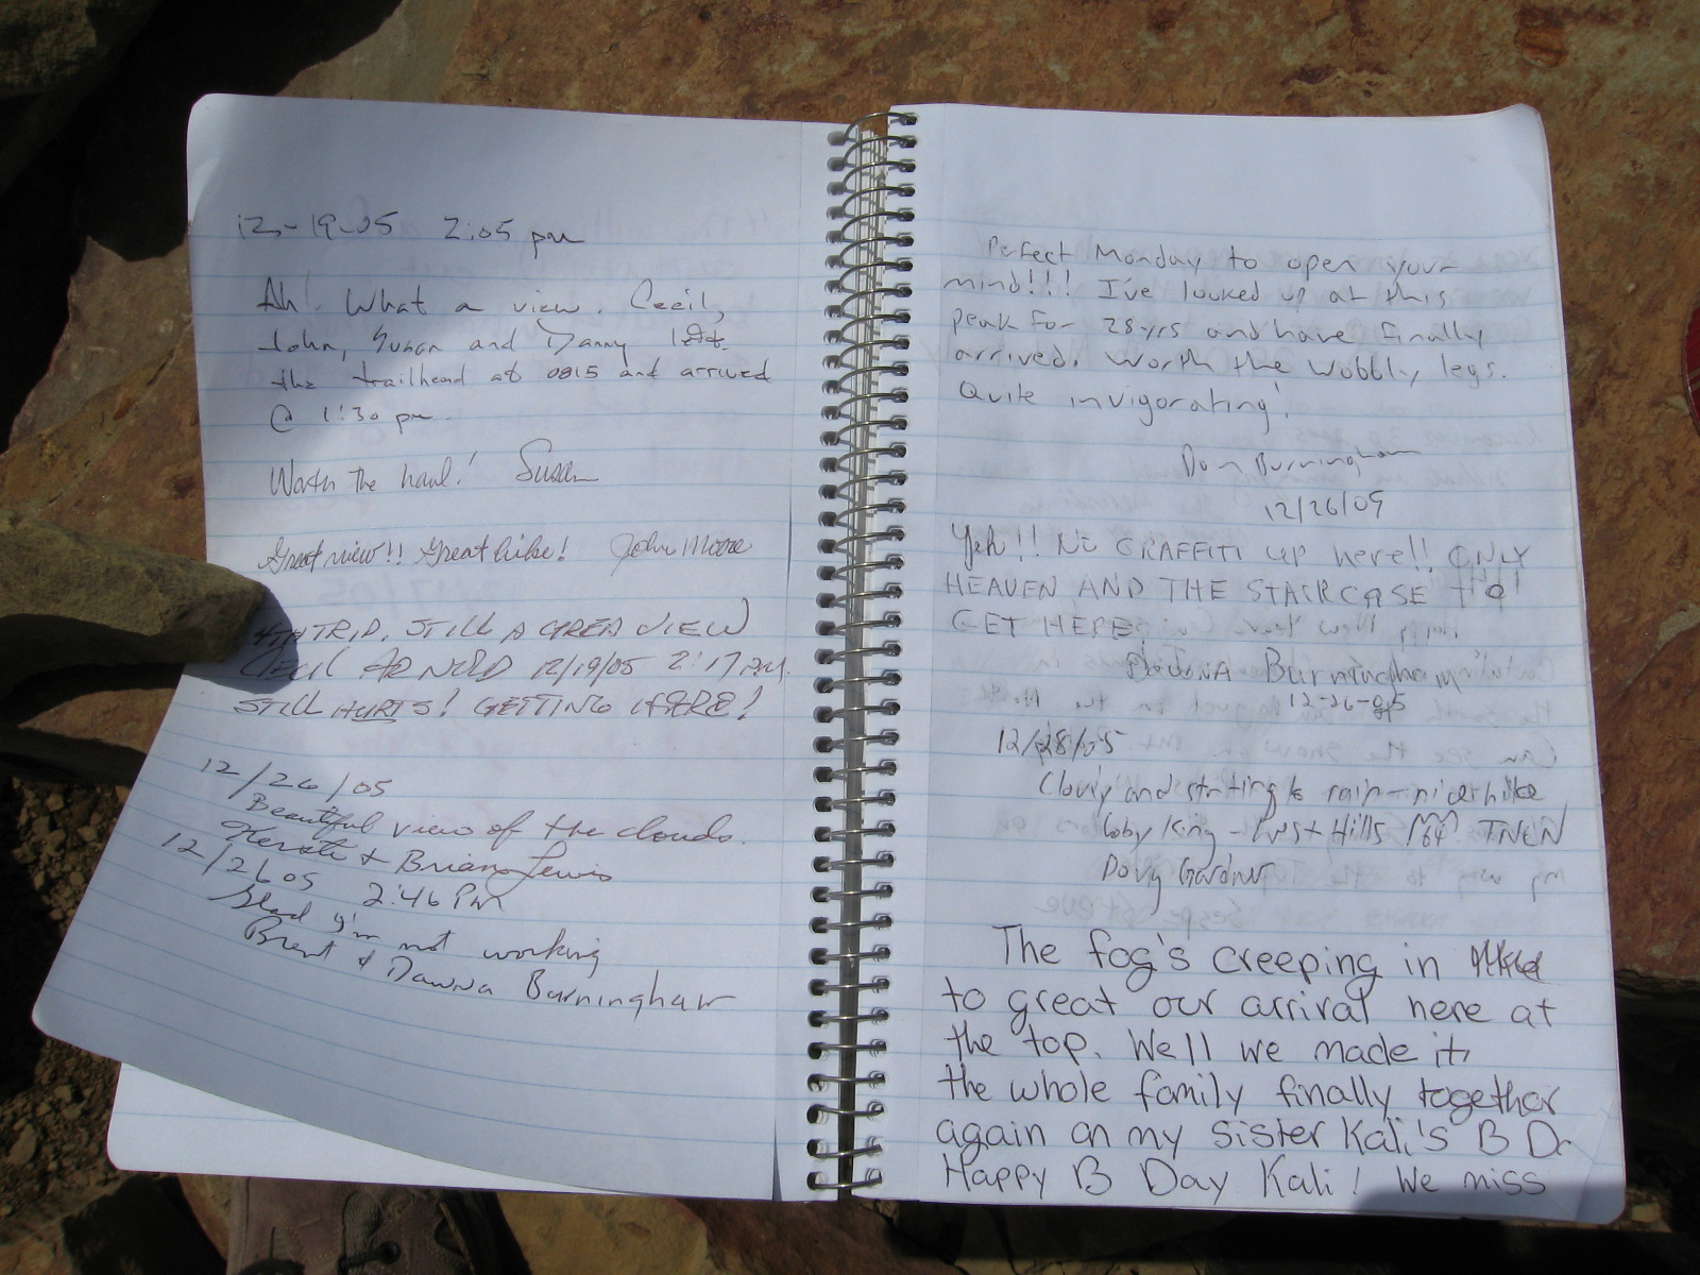 12-19-05 2:05 pm
Ah! What a view. Cecil,
John, Susan and Danny left
the trailhead at 0815 and arrived
@ 1:30 pm.
Worth the haul! Susan
Great view!! Great hike! John Moore
4TH TRIP. STILL A GREA VIEW
CECIL ARNOLD 12/19/05 2:17 P.M.
STILL HURTS! GETTING HERE!
12/26/05
Beautiful view of the clouds.
& Brian Lewis
12/26 05 2:46 PM
Glad I'm not working
Brent & Dawna Burningham
Perfect Monday to open your
mind!!! I've looked up at this
peak for 28 yrs and have finally
arrived. Worth the wobbly legs.
Quite invigorating!
Don Burningham
12/26/05
Yeh!! No GRAFFITI up here!! ONLY
HEAVEN AND THE STAIRCASE to
GET HERE!
Burningham
12-26-05
12/28/05
Cloudy and starting to rain - nice hike
Coby King - West Hills
Doug Gardner
The fog's creeping in
to great our arrival here at
the top. Well we made it,
the whole family finally together
again on my sister Kali's B Da
Happy B Day Kali! We miss